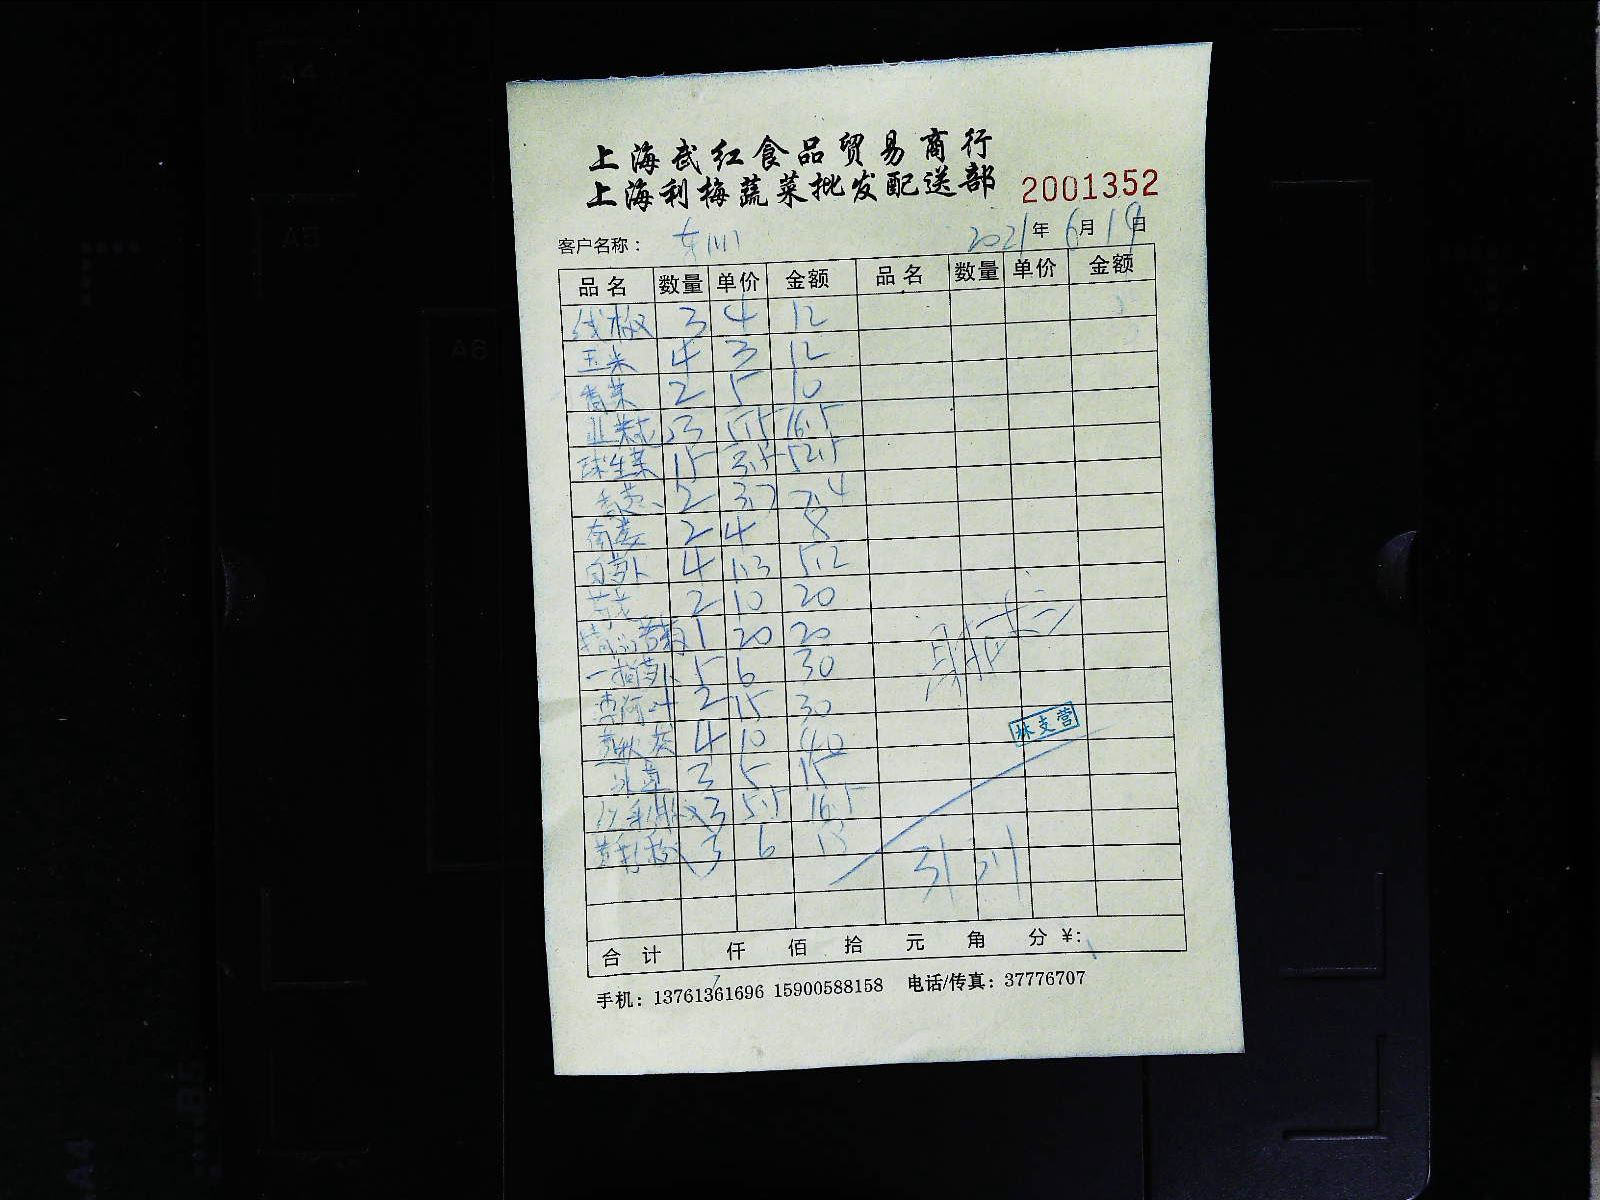 上海武红食品贸易商行
上海利梅蔬菜批发配送部
2001352
客户名称：
2021年6月19日
品名 数量 单价 金额 品名 数量 单价 金额
线椒 3 4 12
玉米 4 3 12
香菜 2 5 10
3 5.5 16.5
球生菜 15 3.5 52.5
2 3.7 7.4
2 4 8
白萝卜 4 1.3 5.2
2 10 20
1 20 20
5 6 30
2 15 30
黄秋葵 4 10 40
冰草 3 5 15
3 5.5 16.5
3 6 18
林支营
合计 仟 佰 拾 元 角 分 ¥：
手机：13761361696 15900588158 电话/传真：37776707